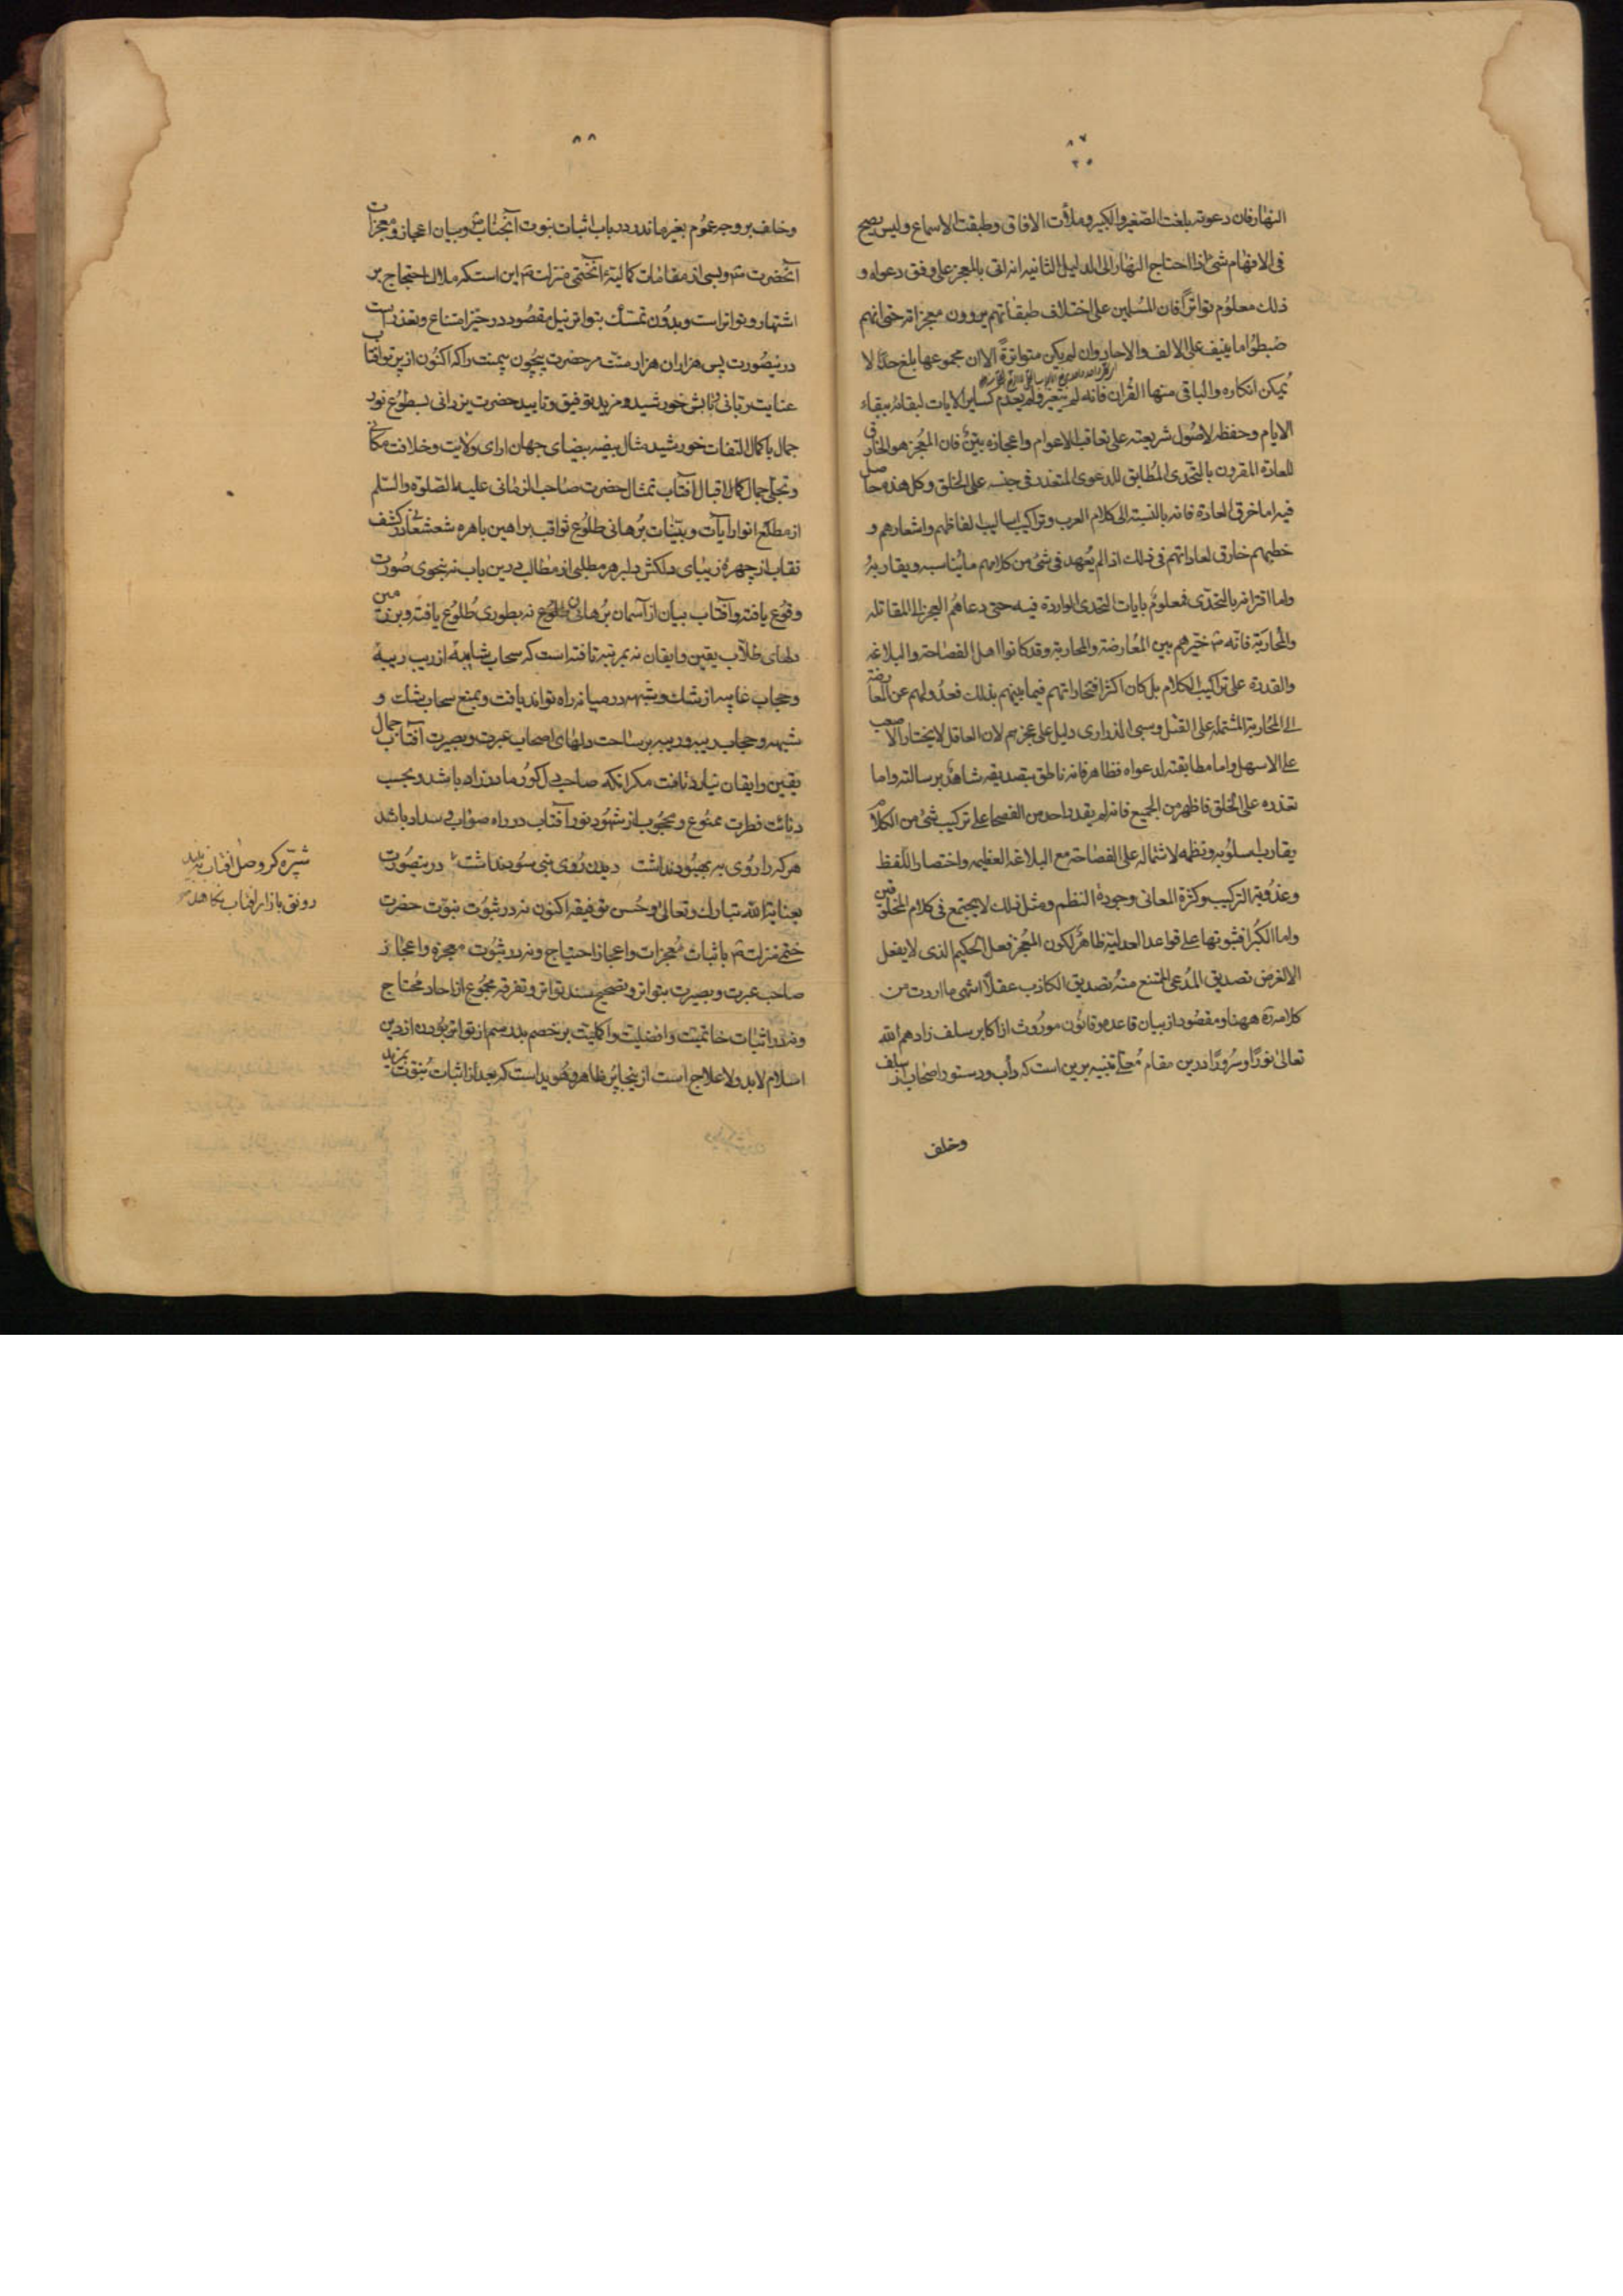 ٨٧
٢٥
النهار فان دعوته بلغت الصغير والكبير وملأت الافاق وطبقت الاسماع وليس يصح
فى الافهام شئ اذا احتاج النهار الى الدليل الثانيه انه اتى بالمعجز على وفق دعواه و
ذلك معلوم تواتراً فان المسلمين على اختلاف طبقاتهم يروون معجزاته حتى انهم
ضبطوا ما ينيف على الالف والاحاد وان لم يكن متواترةً الا ان مجموعها بلغ حدّاً لا
يُمكن انكاره والباقى منها القران فانه لم يتغير ولم يعدم كساير الايات لبقائه ببقاء
الايام وحفظه لاصول شريعته على تعاقب الاعوام واعجازه بيّنٌ فان المُعجز هو الخارق
للعادة المقرون بالتحدى المطابق للدعوى المتعذر فى جنسه على الخلق وكل هذه حاصل
فيه اما خرق العادة فانه بالنسبة الى كلام العرب وتراكيب اساليب الفاظهم واشعارهم و
خطبهم خارق لعاداتهم فى ذلك اذ لم يُعهد فى شئ من كلامهم ما يُناسبه ويقاربهُ
واما اقترانه بالتحدّى فمعلومٌ بايات التحدى الواردة فيه حتى دعاهُم العجز الى المقاتله
والمُحاربة فانّه ص خيّرهم بين المُعارضة والمحاربة وقد كانوا اهل الفصاحة والبلاغه
والقدرة على تراكيب الكلام بل كان اكثر افتخاراتهم فيما بينهم بذلك فعدُولهم عن المعارضة
الى المُحاربة المشتمله على القتل وسبى الذرارى دليل على عجزهم لان العاقل لا يختار الاصعب
على الاسهل واما مطابقته لدعواه فظاهر فانه ناطق بتصديقه شاهدٌ برسالته واما
تعذره على الخلق فاظهر من الجميع فانه لم يقدر واحد من الفصحاء على تركيب شئ من الكلام
يقارب اسلوبه ونظمه لاشتماله على الفصاحة مع البلاغة العظيمه واختصار اللفظ
وعذُوبة التركيب وكثرة المعانى وجودة النظم ومثل ذلك لا يجتمع فى كلام المخلوقين
واما الكُبرا فثبوتها على قواعد العدليّة ظاهرٌ لكون المُعجز فعل الحكيم الذى لا يفعل
الا لغرض تصديق المُدعى الممتنع منهُ تصديق الكاذب عقلاً انتهى ما اردت من
كلامه ره ههنا ومقصُود از بيان قاعده وقانُون مورُوث از اكابر سلف زادهم الله
تعالىٰ نورًا وسرُورًا درين مقام تنبيه برين است كه دأب ودستور اصحاب از سلف
وخلف
٨٨
وخلف بر وجه عمُوم بغير ماندر در باب اثبات نبوت آنجناب ص وبيان اعجاز ومعجزات
آنحضرت ص وبسى از مقامات كماليّهٔ آن ختمى منزلت ص اين است كه ملاك احتجاج بر
اشتهار وتواتر است وبدُون تمسّك بتواتر نيل مقصُود در حيّز امتناع وتعذر است
درينصُورت پس هزاران هزار منّت مر حضرت بيچون بيمنت را كه اكنُون از پرتو افتاب
عنايت ربّانى وتابش خورشيد ومزيد توفيق وتاييد حضرت يزدانى بسطُوع نور
جمال با كمال التفات خورشيد مثال بيضه بيضاى جهان اراى ولايت وخلافت مكانى
وتجلى جمال كمال اقبال آفتاب تمثال حضرت صاحب الزمانى عليه الصلوة والسّلم
از مطلع انوار آيات وبيّنات بُرهانى طلُوع ثواقب براهين باهره شعشعانى در كشف
نقاب از چهرهٔ زيباى دلكش دلبر هر مطلبى از مطالب درين باب نه بنحوى صُورت
وقُوع يافته وآفتاب بيان از آسمان بُرهان نه بطورى طُلوع يافته وبر زمين
دلهاى طلّاب يقين وايقان نه بمرتبه تافته است كه سحاب شايبهٔ از ريب ريبه
وحجاب غايبه از شك وشبهه در ميانه راه تواند يافت وبمنع سحاب شك و
شبهه وحجاب ريبه وريبه بر ساحت دلهاى اصحاب عبرت وبصيرت آفتاب جمال
يقين وايقان نيارد تافت مكر انكه صاحب دل كور مادرزاد باشد وبحسب
دنائت فطرت ممنُوع ومحجُوب از شهُود نور آفتاب در راه صواب وسداد باشد
هر كه را رُوى به بهبُود نداشت ديدن رُوى نبى سُود نداشت درينصُورت
بعناية الله تبارك وتعالى وحُسن توفيقه اكنون نه در ثبوت نبوّت حضرت
ختمى منزلت ص باثبات مُعجزات واعجاز احتياج ونه در ثبُوت معجزه واعجاز
صاحب عبرت وبصيرت بتواتر وتصحيح سند تواتر وتفرقه مجمُوع از احاد مُحتاج
ونه در اثبات خاتميّت وافضليّت واكمليّت بر خصم از تواتر بُودن از دين
اسلام لابد ولا علاج است از ينجا پُر ظاهر وهُويد است كه بعد از اثبات نبوّت بمزيد
شپّره كر وصل افتاب نه بيند
رونق بازار افتاب نكاهد